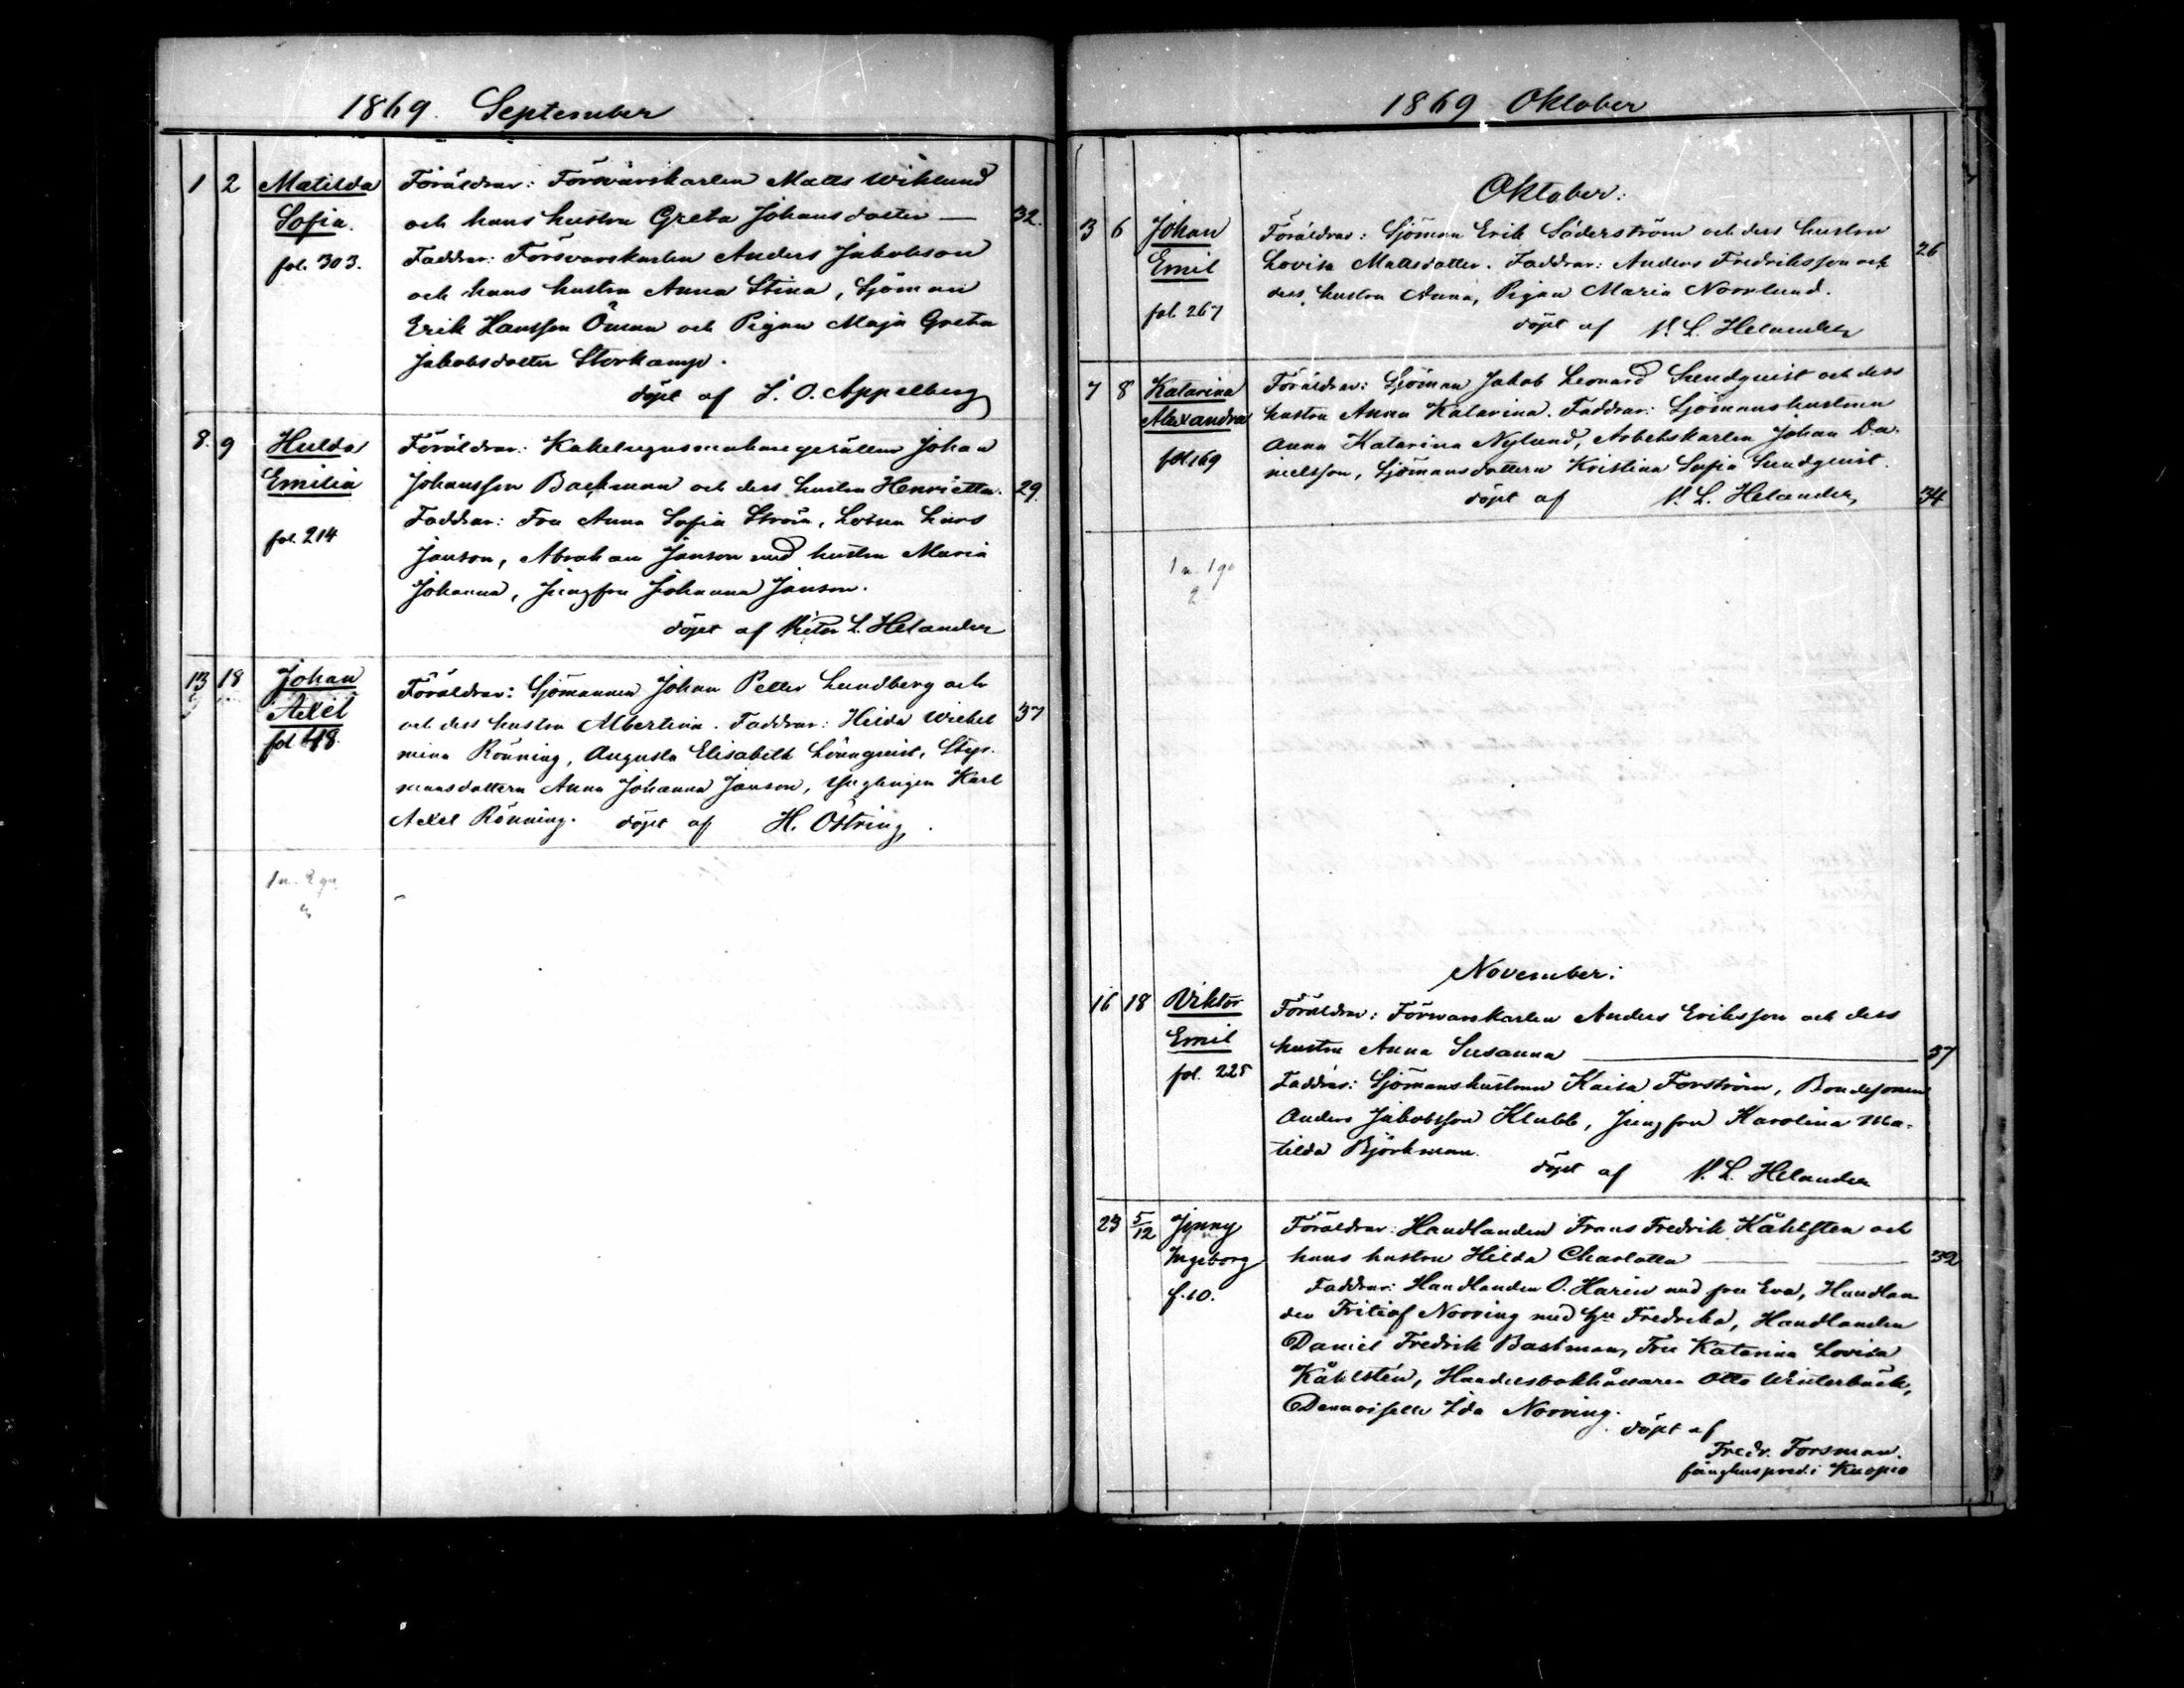 1869. September
1 2 Matilda Föräldrar: Försvarskarlen Matts Wiklund
Sofia. och hans hustru Greta Johansdotter — 32.
fol. 303. Faddrar: Försvarskarlen Anders Jakobson
och hans hustru Anna Stina, Sjöman
Erik Hansson Öman och Pigan Maja Greta
Jakobsdotter Storkamp.
döpt af L. O. Appelberg
8. 9 Hulda Föräldrar: Kakelugnsmakaregesällen Johan
Emilia Johansson Backman och dess hustru Henrietta. 29.
Faddrar: Fru Anna Sofia Ström, Lotsen Lars
fol. 214
Janson, Abraham Janson med hustru Maria
Johanna, Jungfru Johanna Janson.
döpt af Victor L. Helander
13 18 Johan Föräldrar: Sjömannen Johan Petter Lundberg och
Axel och dess hustru Albertina. Faddrar: Hilda Wilhel 37
fol 48. mina Rönning, Augusta Elisabeth Lönnquist, Styr-
mansdottern Anna Johanna Janson, Ynglingen Karl
Axel Rönning. döpt af H. Östring.
1869 Oktober
Oktober:
3 6 Johan Föräldrar: Sjöman Erik Söderström och dess hustru
Emil Lovisa Mattsdotter. Faddrar: Anders Fredriksson och 26
dess hustru Anna, Pigan Maria Norrlund.
fol. 267 döpt af V. L. Helander
7 8 Katarina Föräldrar: Sjöman Jakob Leonard Sundquist och dess
Alexandra hustru Anna Katarina. Faddrar: Sjömanshustrun
Anna Katarina Nylund, Arbetskarlen Johan Da-
fol 169 nielsson, Sjömansdottern Kristina Sofia Sundquist.
döpt af V. L. Helander, 34
November:
16 18 Viktor Föräldrar: Försvarskarlen Anders Eriksson och dess
Emil hustru Anna Susanna — 37
fol. 225 Faddrar: Sjömanshustrun Kaisa Forström, Bondesonen
Anders Jakobsson Klubb, Jungfru Karolina Ma-
tilda Björkman.
döpt af V. L. Helander
23 5/12 Jenny Föräldrar: Handlanden Frans Fredrik Kåhlsten och
Ingeborg hans hustru Hilda Charlotta — 32
f. 10. Faddrar: Handlanden O. Harin med fru Eva, Handlan
den Fritiof Norring med fru Fredrika, Handlanden
Daniel Fredrik Bastman, Fru Katarina Lovisa
Kåhlstén, Handelsbokhållaren Otto Winterbäck,
Demoiselle Ida Norring.
döpt af
Fredr. Forsman.
fänghuspred. i Kuopio